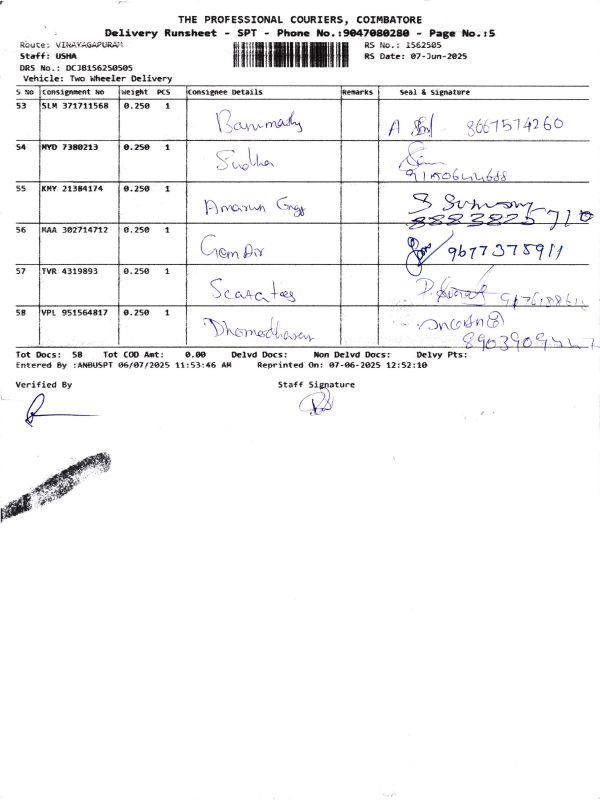 THE PROFESSIONAL COURIERS, COIMBATORE
Delivery Runsheet - SPT - Phone No.:9047080280 - Page No.:5
Route: VINAYAGAPURAM
RS No.: 1562505
Staff: USHA
RS Date: 07-Jun-2025
DRS No.: DCJB156250505
Vehicle: Two Wheeler Delivery
S No Consignment No Weight PCS Consignee Details Remarks Seal & Signature
53 SLM 371711568 0.250 1 A 8667574260
54 MYD 7380213 0.250 1 Sudha
55 KMY 21384174 0.250 1
56 MAA 302714712 0.250 1 Gem Air 9677375911
57 TVR 4319893 0.250 1
58 VPL 951564817 0.250 1 Dhamodharan
Tot Docs: 58 Tot COD Amt: 0.00 Delvd Docs: Non Delvd Docs: Delvy Pts:
Entered By :ANBUSPT 06/07/2025 11:53:46 AM Reprinted On: 07-06-2025 12:52:10
Verified By Staff Signature